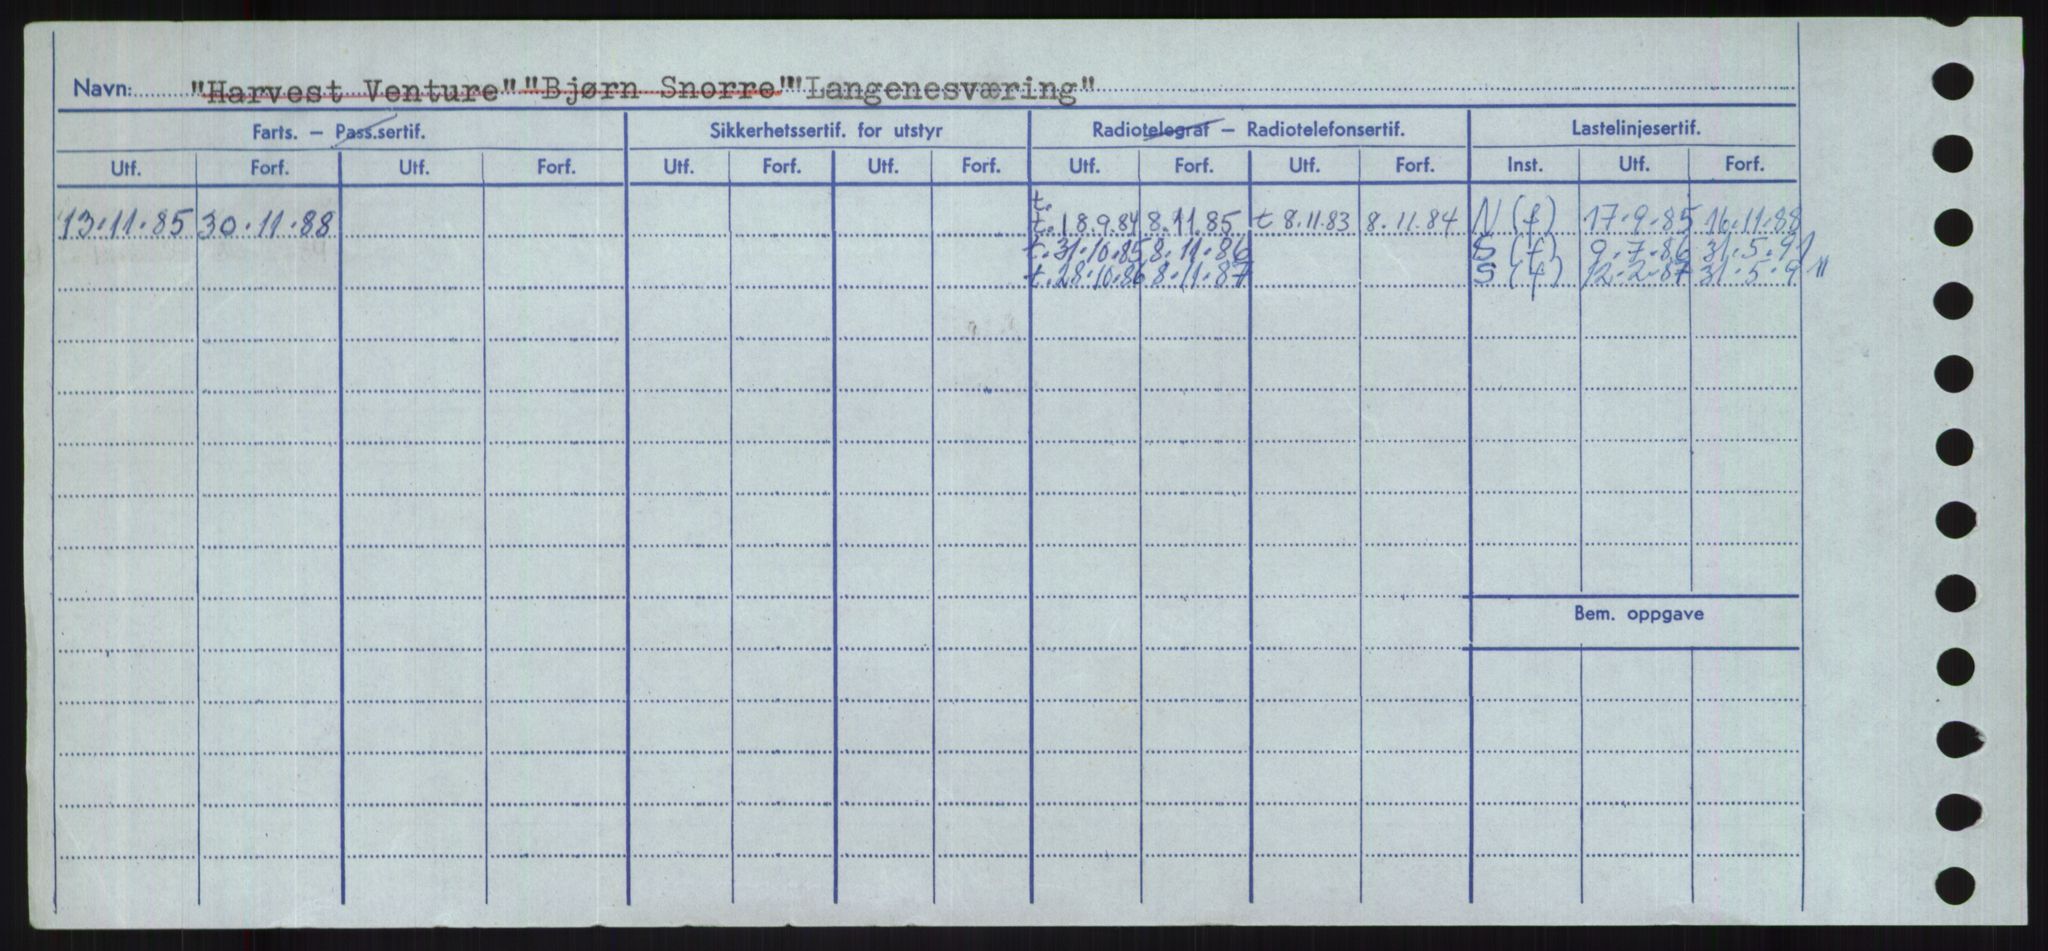 Navn: "Harvest Venture" "Bjørn Snorre" "Langenesværing"
Farts. – Pass.sertif. Sikkerhetssertif. for utstyr Radiotelegraf – Radiotelefonsertif. Lastelinjesertif.
Utf. Forf. Utf. Forf. Utf. Forf. Utf. Forf. Utf. Forf. Utf. Forf. Inst. Utf. Forf.
t.
13.11.85 30.11.88 t. 18.9.84 8.11.85 t 8.11.83 8.11.84 N (f) 17.9.85 16.11.88
t. 31.10.85 8.11.86 S (f) 9.7.86 31.5.91
t. 28.10.86 8.11.87 S (f) 12.2.87 31.5.91
Bem. oppgave